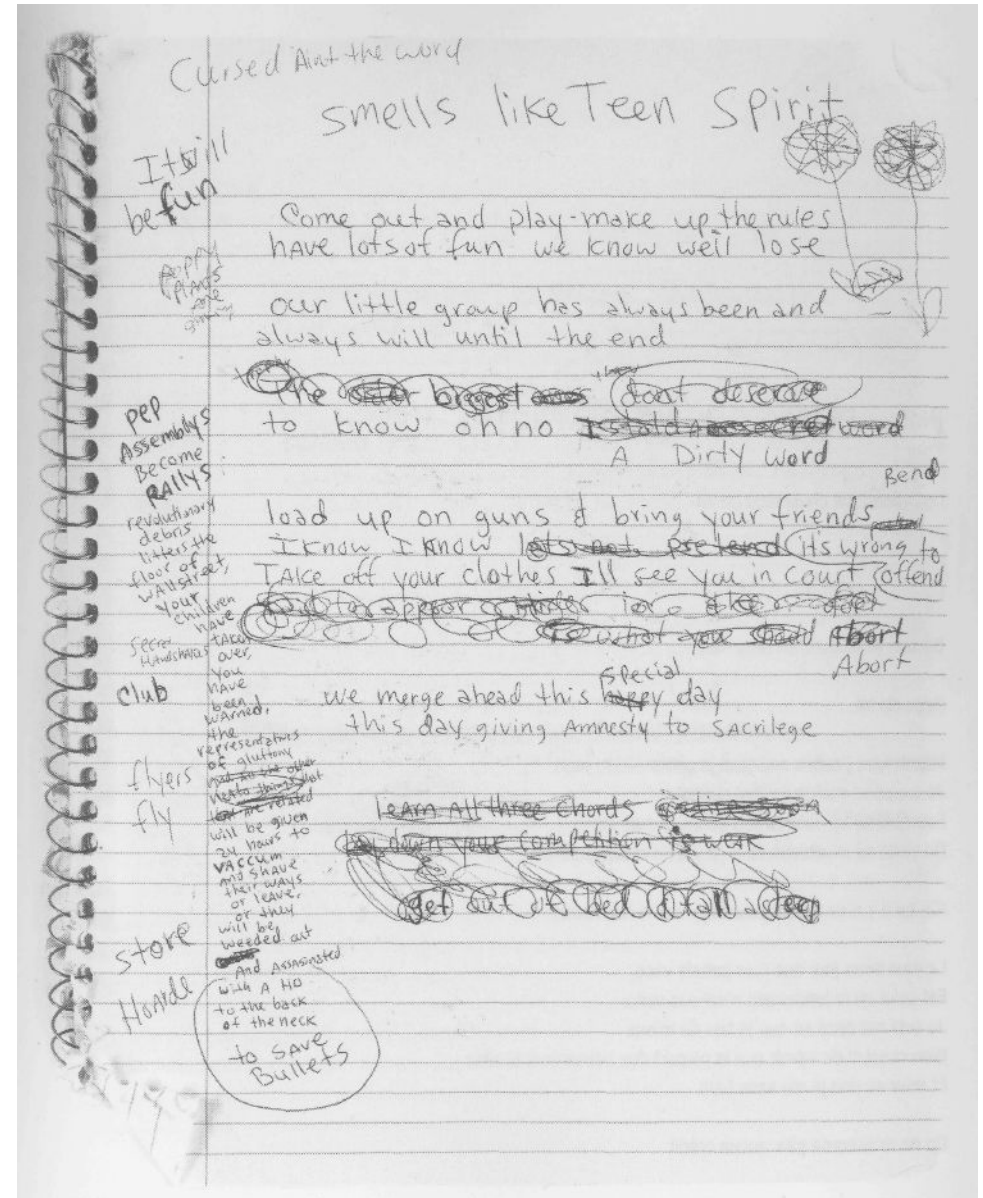 Cursed Aint the word
smells like Teen Spirit
It will
be fun
Come out and play-make up the rules
hAve lots of fun we know we'll lose
poppy
plants
are
our little group has always been and
always will until the end
The biggest dont deserve
to know oh no word
A Dirty word
pep
Assemblys
Become
RAllys
Bend
load up on guns & bring your friends
I know I know lets not pretend its wrong to
TAke off your clothes Ill see you in Court offend
is what you should Abort
Abort
special
we merge ahead this happy day
this day giving Amnesty to SAcrilege
leArn All three Chords
down your Competition is weak
get out of bed
revolutionary
debris
litters the
floor of
WAllstreet,
your
children
have
taken
over,
you
have
been
wArned,
the
representatives
of gluttony
will be given
24 hours to
VACCUM
And shave
their ways
or leave,
or they
will be
weeded out
And AssAsinated
with A Ho
to the back
of the neck
to SAVE
Bullets
Secret
HAndshakes
Club
flyers
fly
store
HoArde